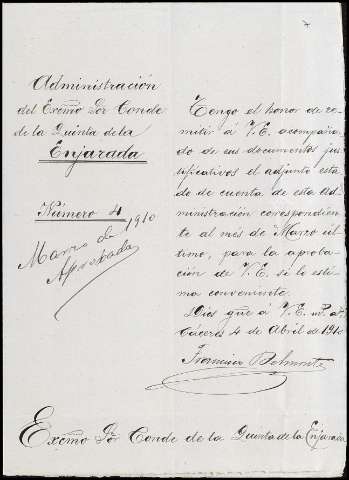 Administración
del Excmo Sor Conde
de la Quinta de la
Enjarada
Número 4
Marzo de 1910
Aprobada
Tengo el honor de re-
mitir á V.E. acompaña-
do de sus documentos jus-
tificativos el adjunto esta-
do de cuenta de esta Ad-
ministración correspondien-
te al més de Marzo úl-
timo, para la aproba-
ción de V.E. si lo esti-
ma conveniente.
Dios gue á V.E. m.s a.s
Cáceres 4 de Abril de 1910
Francisco Belmonte
Excmo Sor Conde de la Quinta de la Enjarada